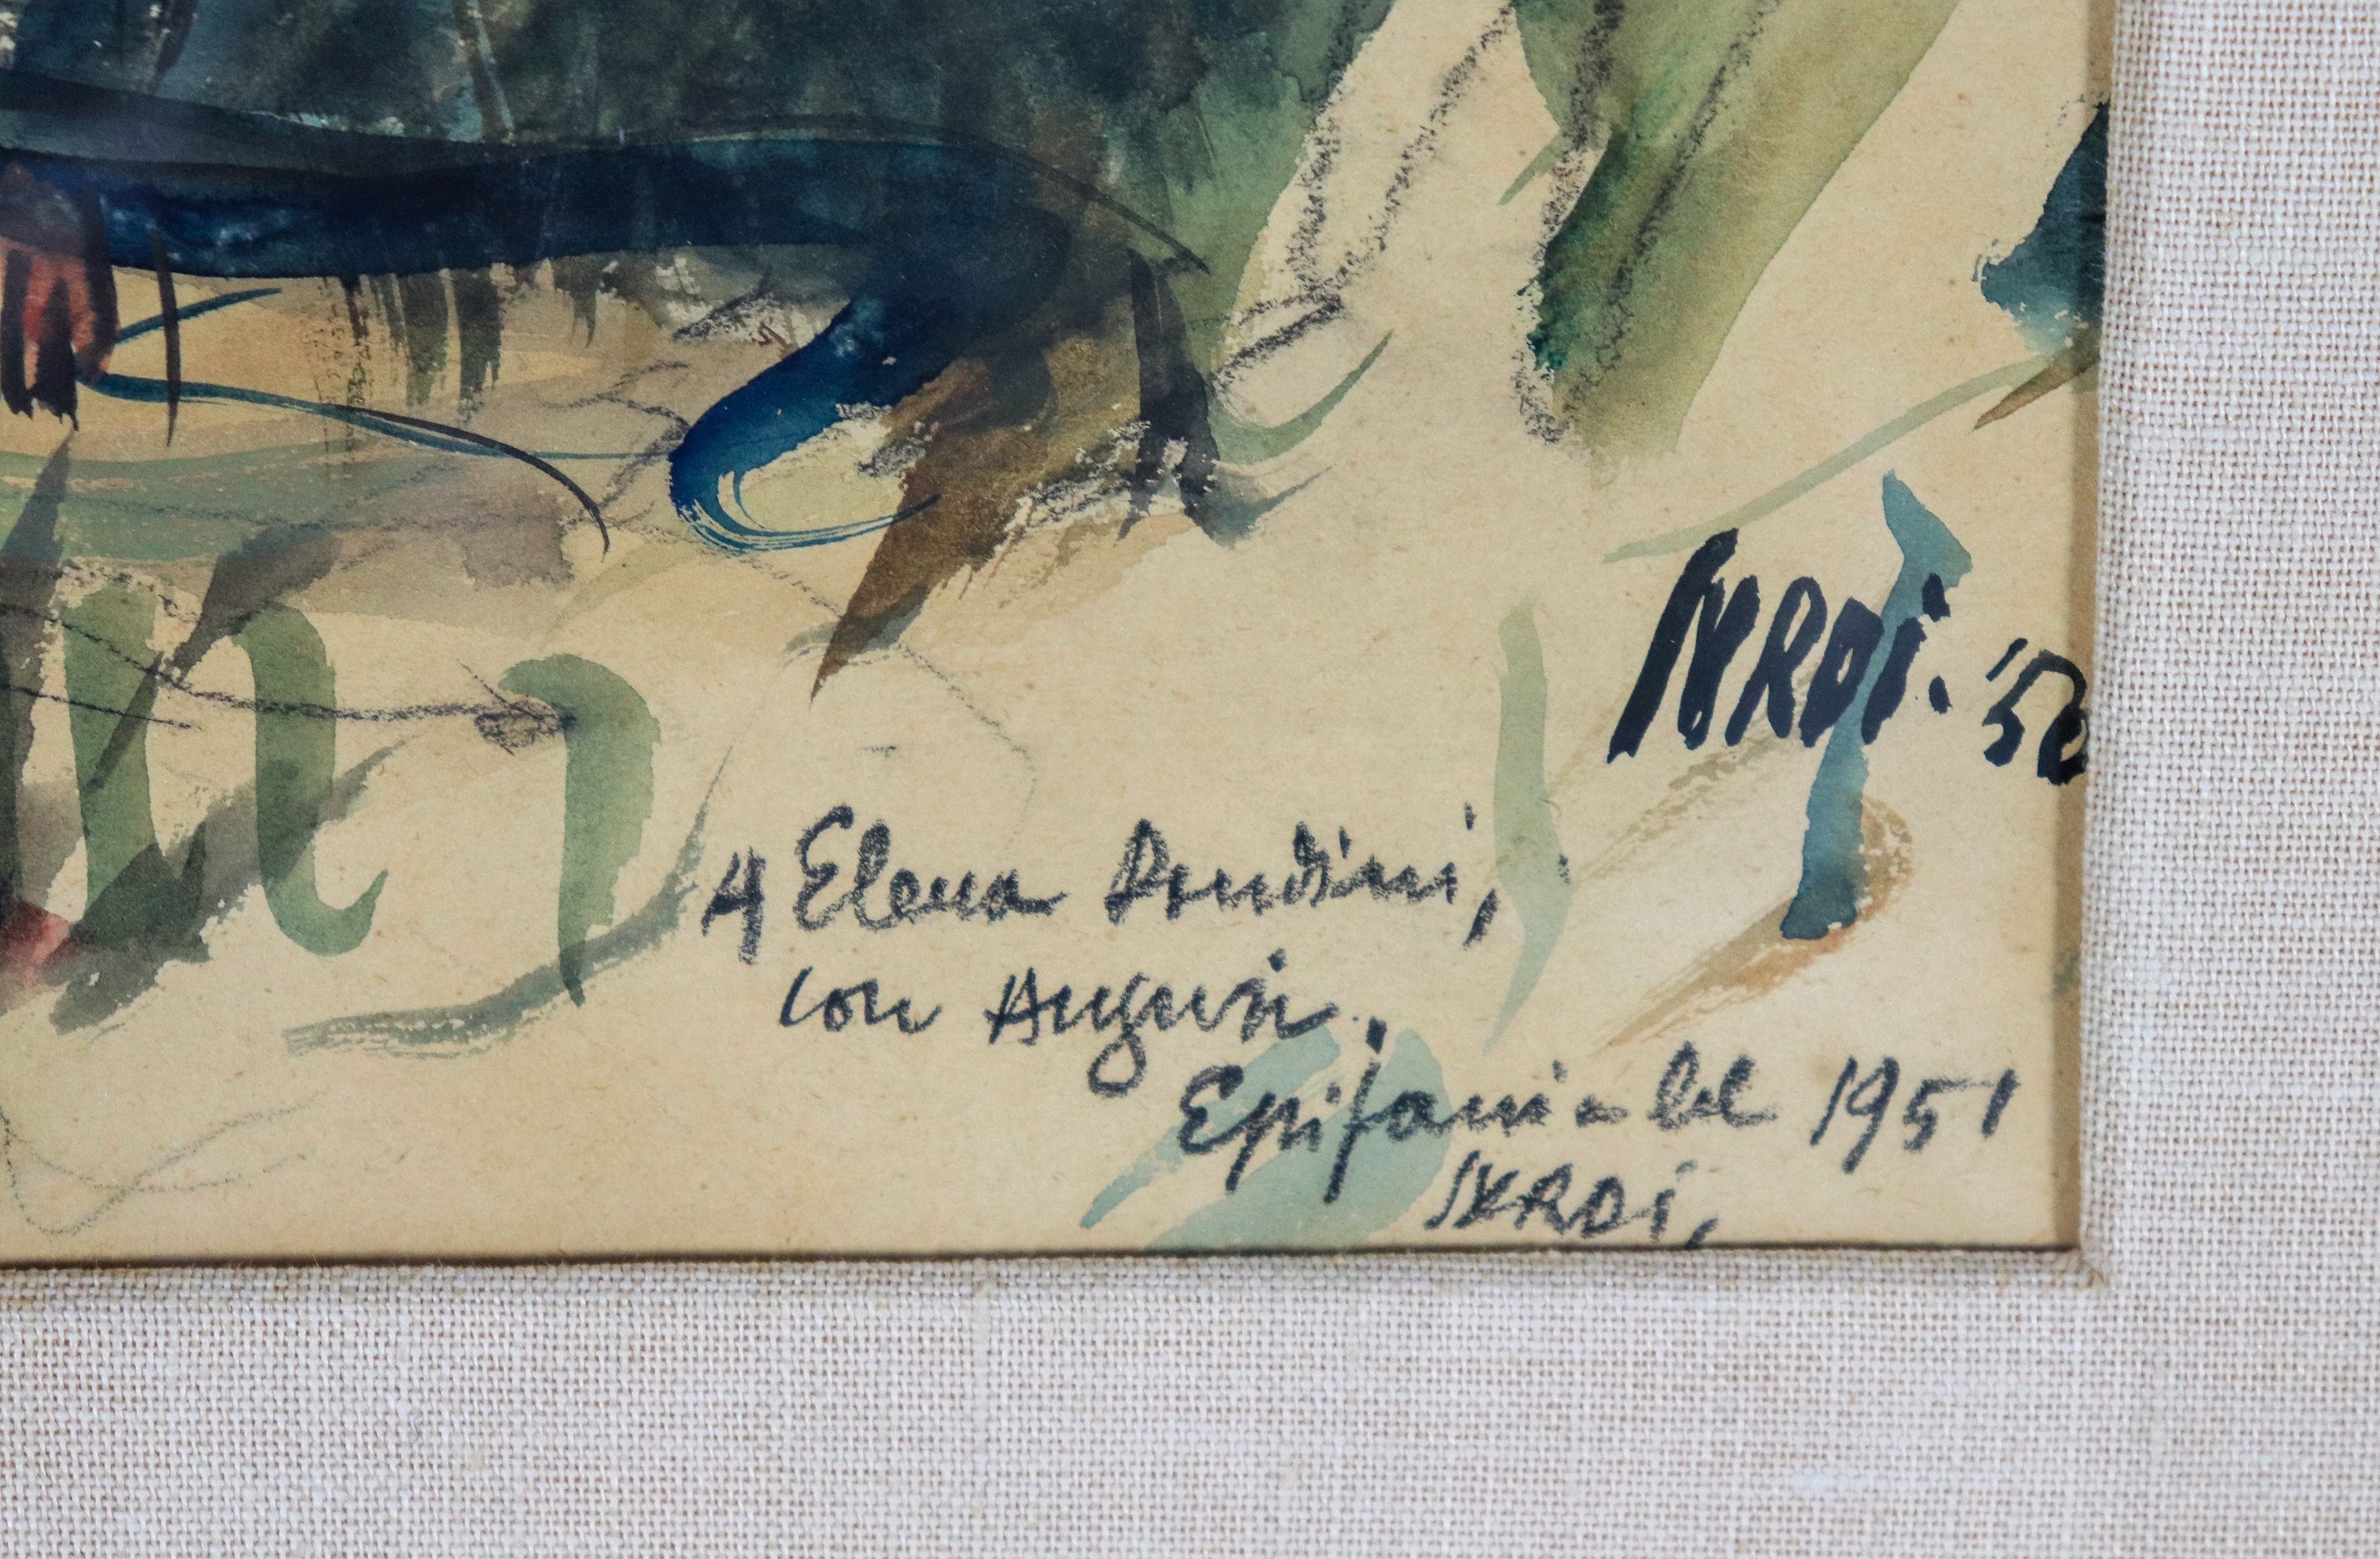 VERDI. '50
A Elena Dondini,
con Auguri.
Epifania del 1951
VERDI.